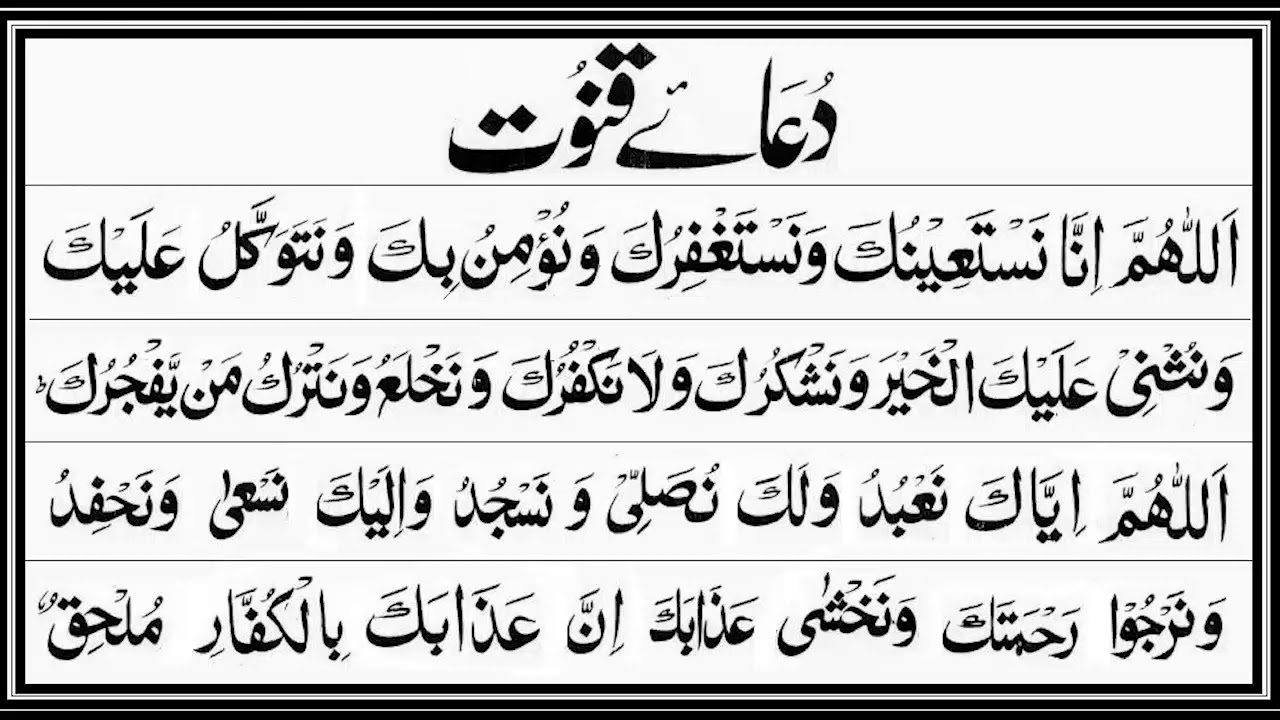 دُعَائے قُنُوت
اَللّٰهُمَّ اِنَّا نَسْتَعِيْنُكَ وَنَسْتَغْفِرُكَ وَنُؤْمِنُ بِكَ وَنَتَوَكَّلُ عَلَيْكَ
وَنُثْنِیْ عَلَيْكَ الْخَيْرَ وَنَشْكُرُكَ وَلَا نَكْفُرُكَ وَنَخْلَعُ وَنَتْرُكُ مَنْ يَّفْجُرُكَ ؕ
اَللّٰهُمَّ اِيَّاكَ نَعْبُدُ وَلَكَ نُصَلِّیْ وَنَسْجُدُ وَاِلَيْكَ نَسْعٰی وَنَحْفِدُ
وَنَرْجُوْا رَحْمَتَكَ وَنَخْشٰی عَذَابَكَ اِنَّ عَذَابَكَ بِالْكُفَّارِ مُلْحِقٌ